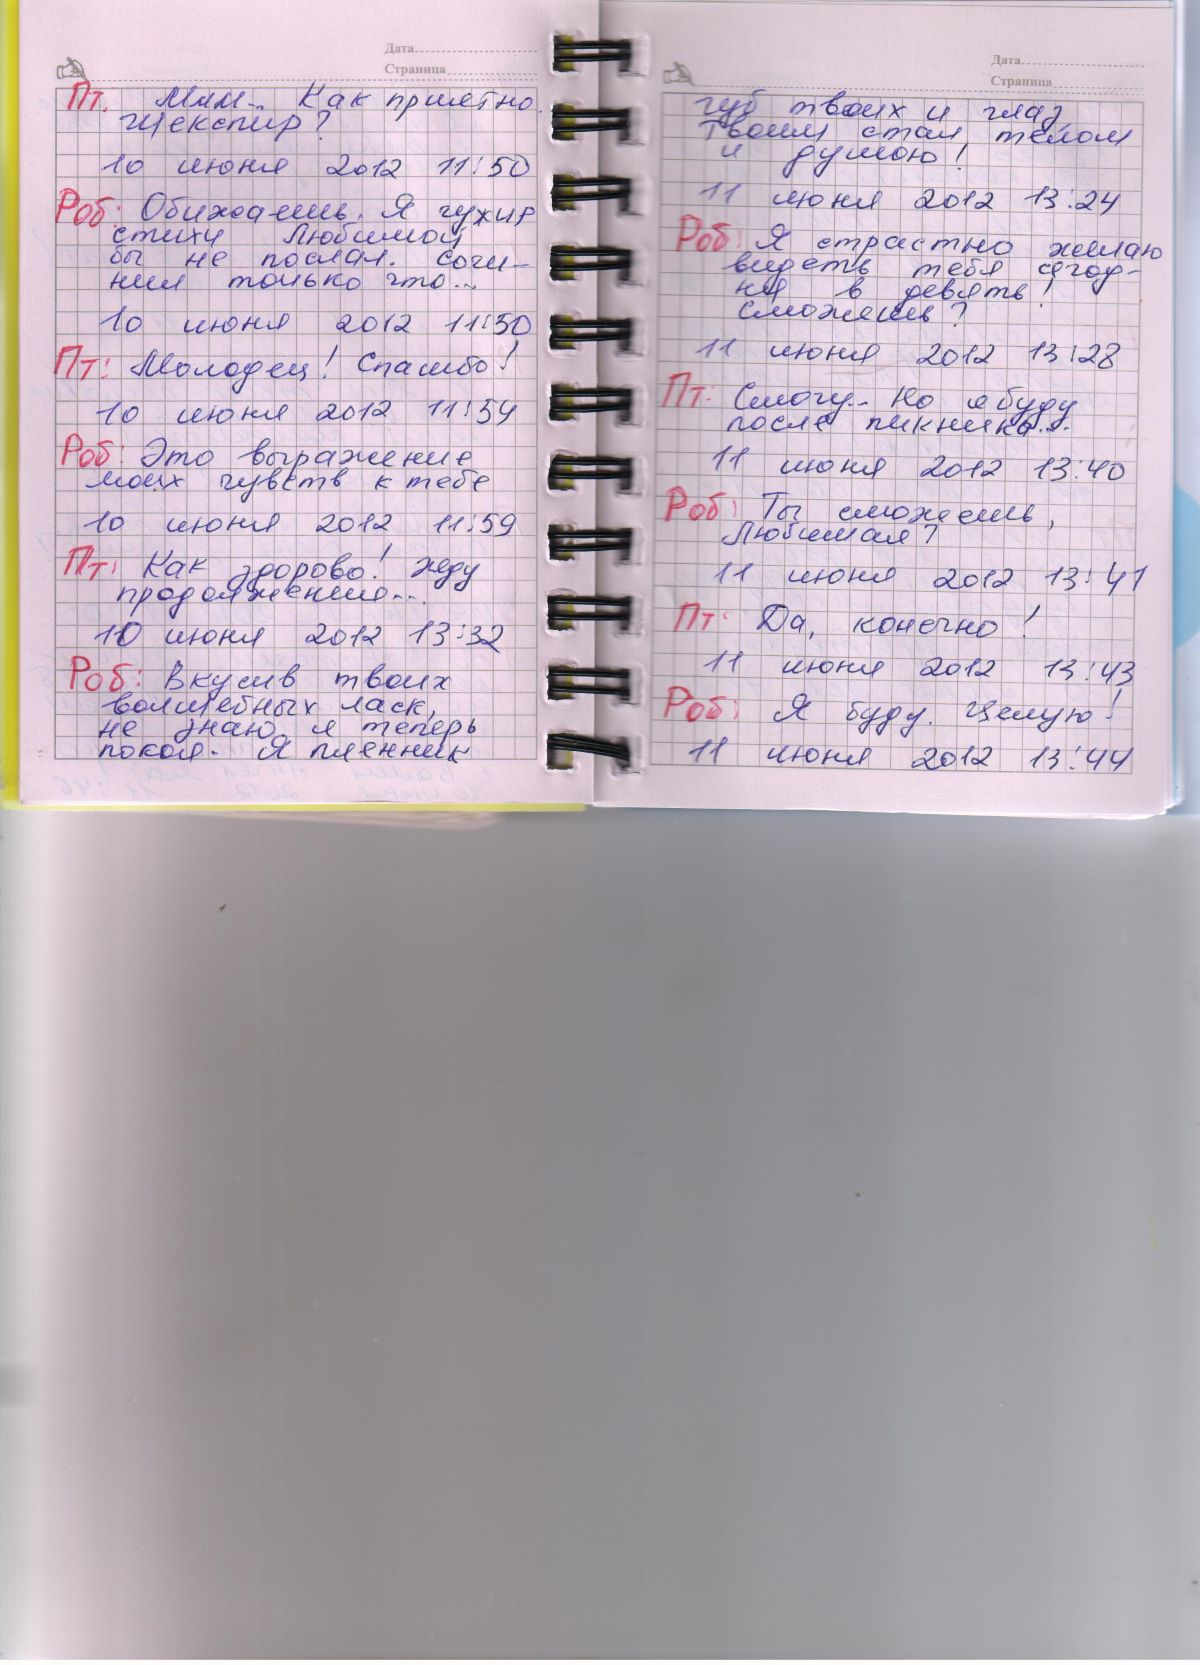 Дата
Страница
Пт. Ммм... Как приятно.
Шекспир?
10 июня 2012 11:50
Роб: Обижаешь. Я чужих
стихи Любимой
бы не послал. Сочи-
нил только что...
10 июня 2012 11:50
Пт: Молодец! Спасибо!
10 июня 2012 11:54
Роб: Это выражение
моих чувств к тебе
10 июня 2012 11:59
Пт: Как здорово! Жду
продолжения...
10 июня 2012 13:32
Роб: Вкусив твоих
волшебных ласк,
не знаю я теперь
покоя. Я пленник
Дата
Страница
губ твоих и глаз,
Твоим стал телом
и душою!
11 июня 2012 13:24
Роб: Я страстно желаю
видеть тебя сегод-
ня в девять!
Сможешь?
11 июня 2012 13:28
Пт: Смогу... Но я буду
после пикника...
11 июня 2012 13:40
Роб: Ты сможешь,
Любимая?
11 июня 2012 13:41
Пт: Да, конечно!
11 июня 2012 13:43
Роб: Я буду. Целую!
11 июня 2012 13:44